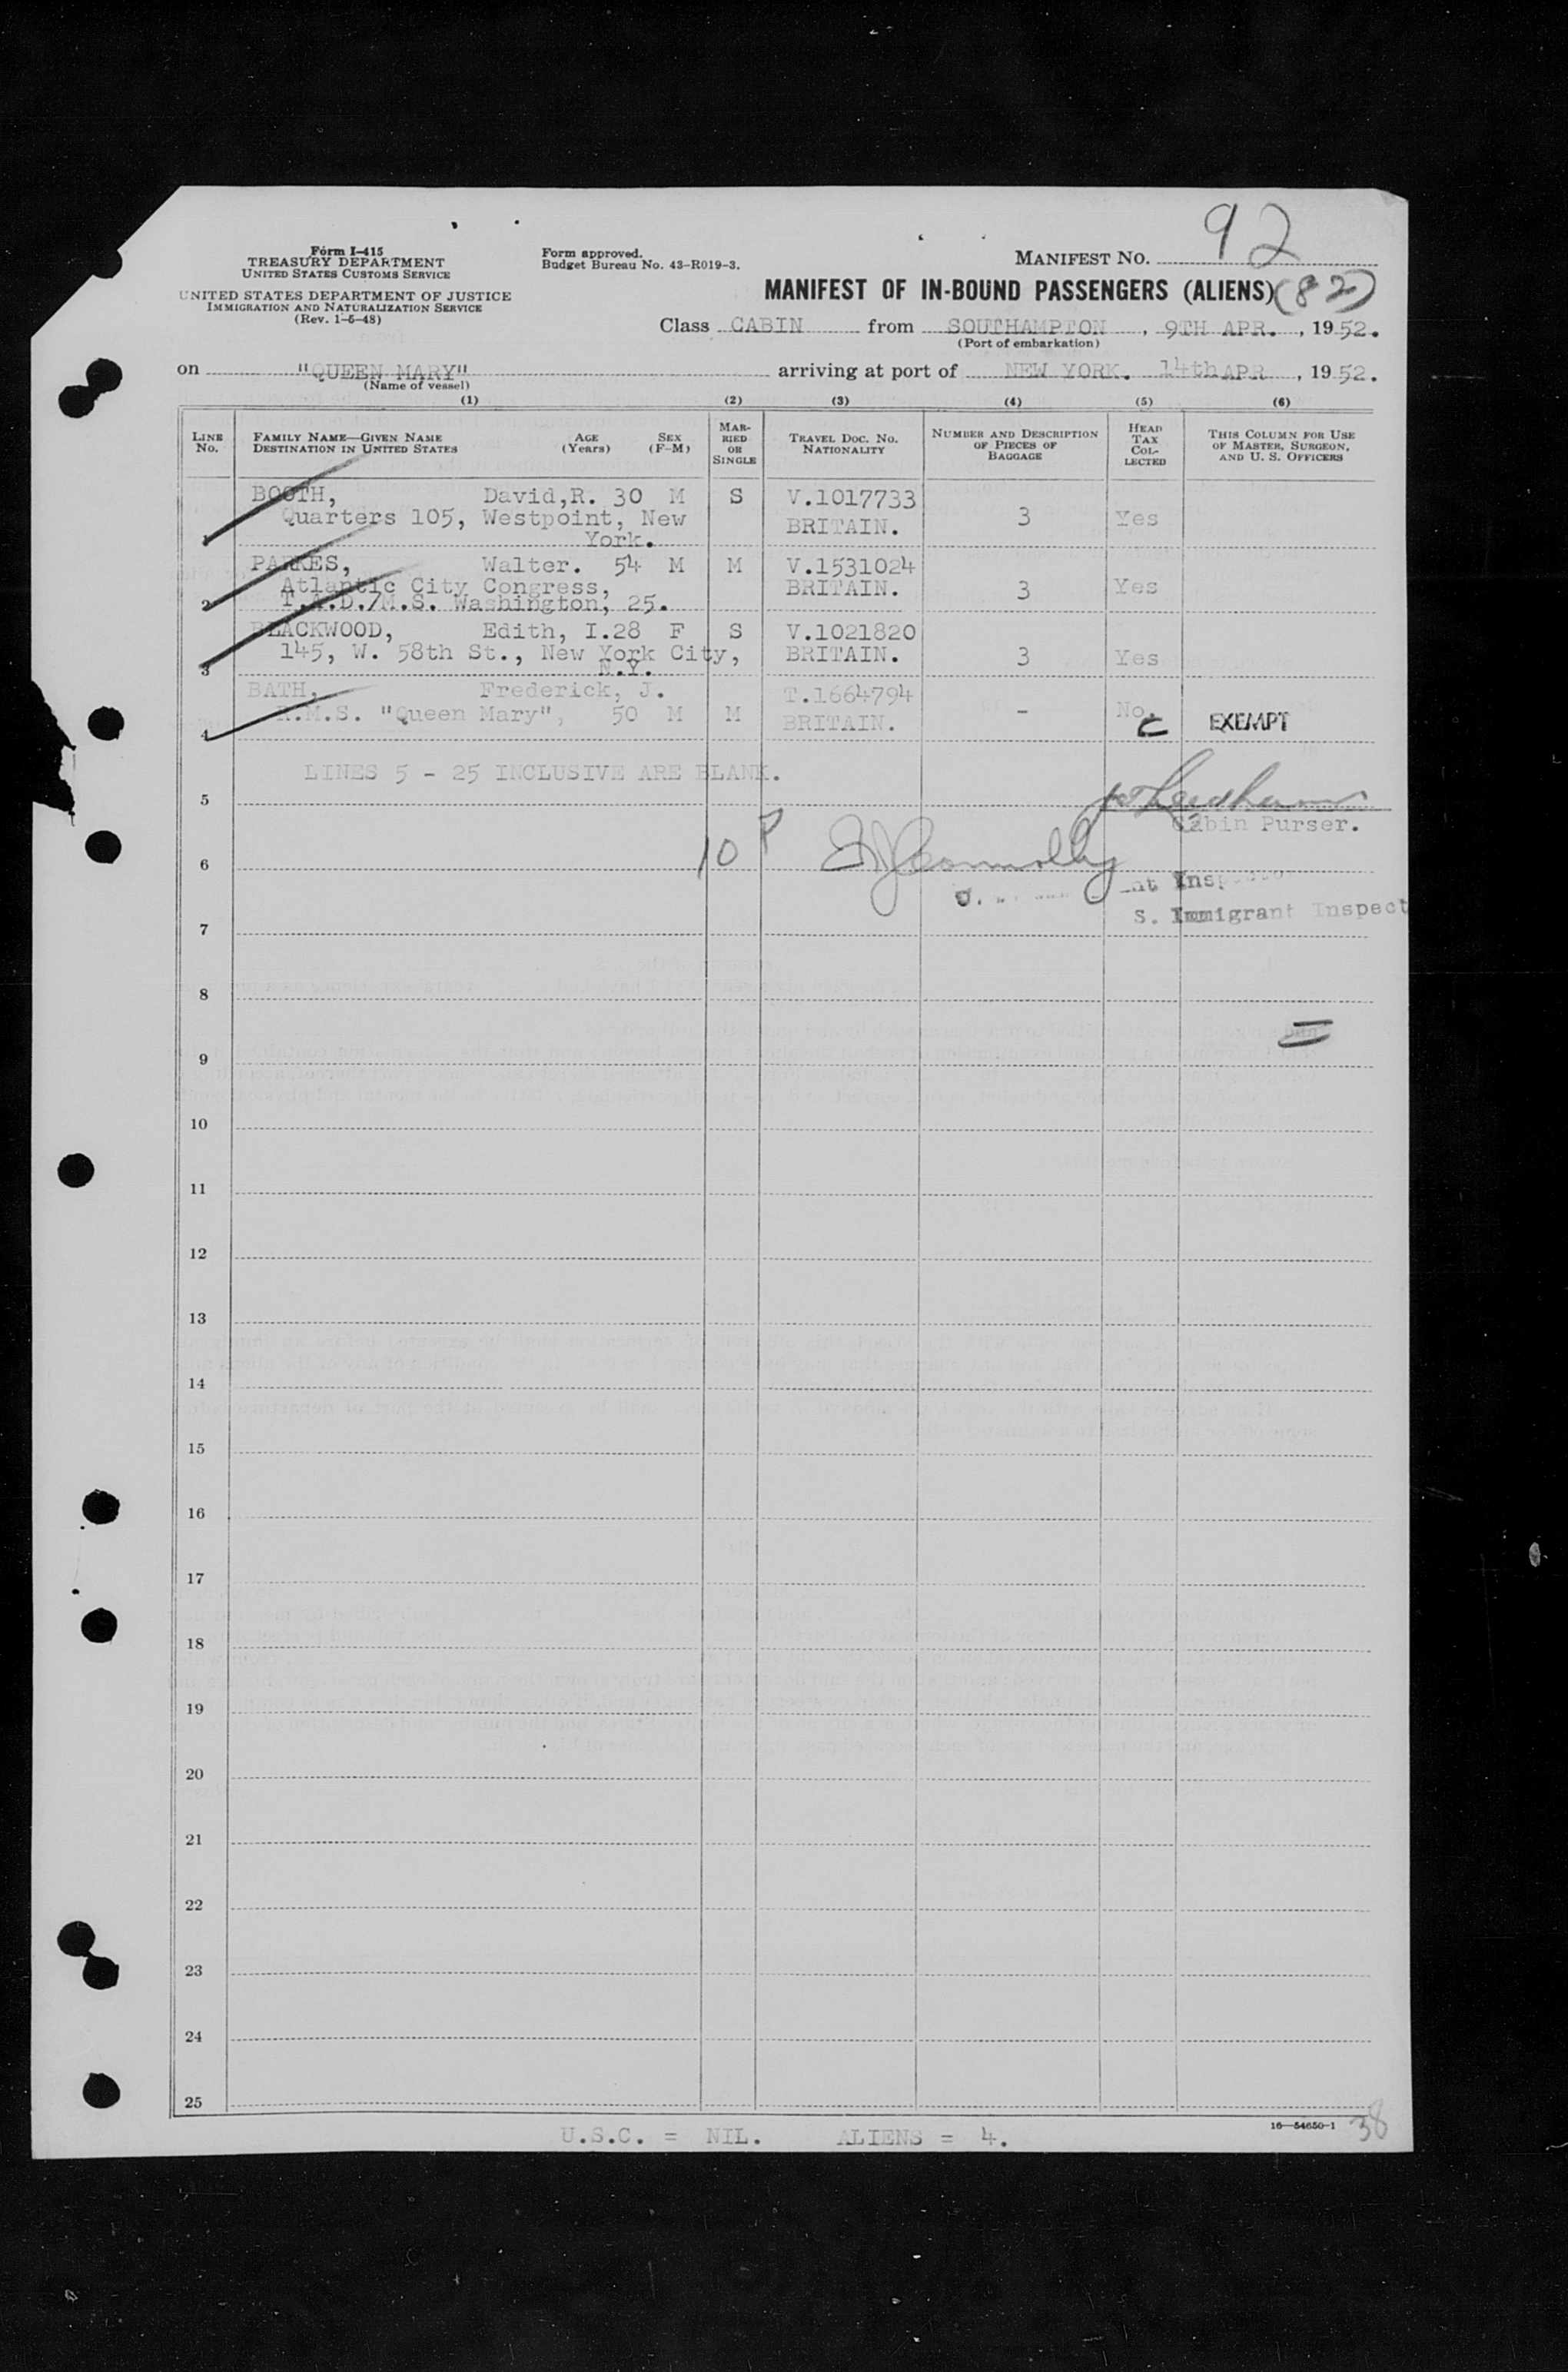 Form I-415
TREASURY DEPARTMENT
UNITED STATES CUSTOMS SERVICE
UNITED STATES DEPARTMENT OF JUSTICE
IMMIGRATION AND NATURALIZATION SERVICE
(Rev. 1-5-48)
Form approved.
Budget Bureau No. 43-R019-3.
MANIFEST NO. 92
MANIFEST OF IN-BOUND PASSENGERS (ALIENS) (82)
Class CABIN from SOUTHAMPTON, 9TH APR., 1952.
(Port of embarkation)
on "QUEEN MARY" arriving at port of NEW YORK. 14th APR, 1952.
(Name of vessel)
(1) (2) (3) (4) (5) (6)
LINE NO.
FAMILY NAME—GIVEN NAME
DESTINATION IN UNITED STATES
AGE (Years)
SEX (F-M)
MARRIED OR SINGLE
TRAVEL DOC. NO.
NATIONALITY
NUMBER AND DESCRIPTION OF PIECES OF BAGGAGE
HEAD TAX COLLECTED
THIS COLUMN FOR USE OF MASTER, SURGEON, AND U. S. OFFICERS
BOOTH, David,R. 30 M S V.1017733
Quarters 105, Westpoint, New BRITAIN. 3 Yes
1 York.
PARKES, Walter. 54 M M V.1531024
Atlantic City Congress, BRITAIN. 3 Yes
2 T.A.D./M.S. Washington, 25.
BLACKWOOD, Edith, I.28 F S V.1021820
145, W. 58th St., New York City, BRITAIN. 3 Yes
3 N.Y.
BATH, Frederick, J. T.1664794
R.M.S. "Queen Mary", 50 M M BRITAIN. - No. EXEMPT
4
LINES 5 - 25 INCLUSIVE ARE BLANK.
5
Cabin Purser.
10 P
6
S. Immigrant Inspect
7
8
9
10
11
12
13
14
15
16
17
18
19
20
21
22
23
24
25
U.S.C. = NIL. ALIENS = 4.
16—54650-1
38